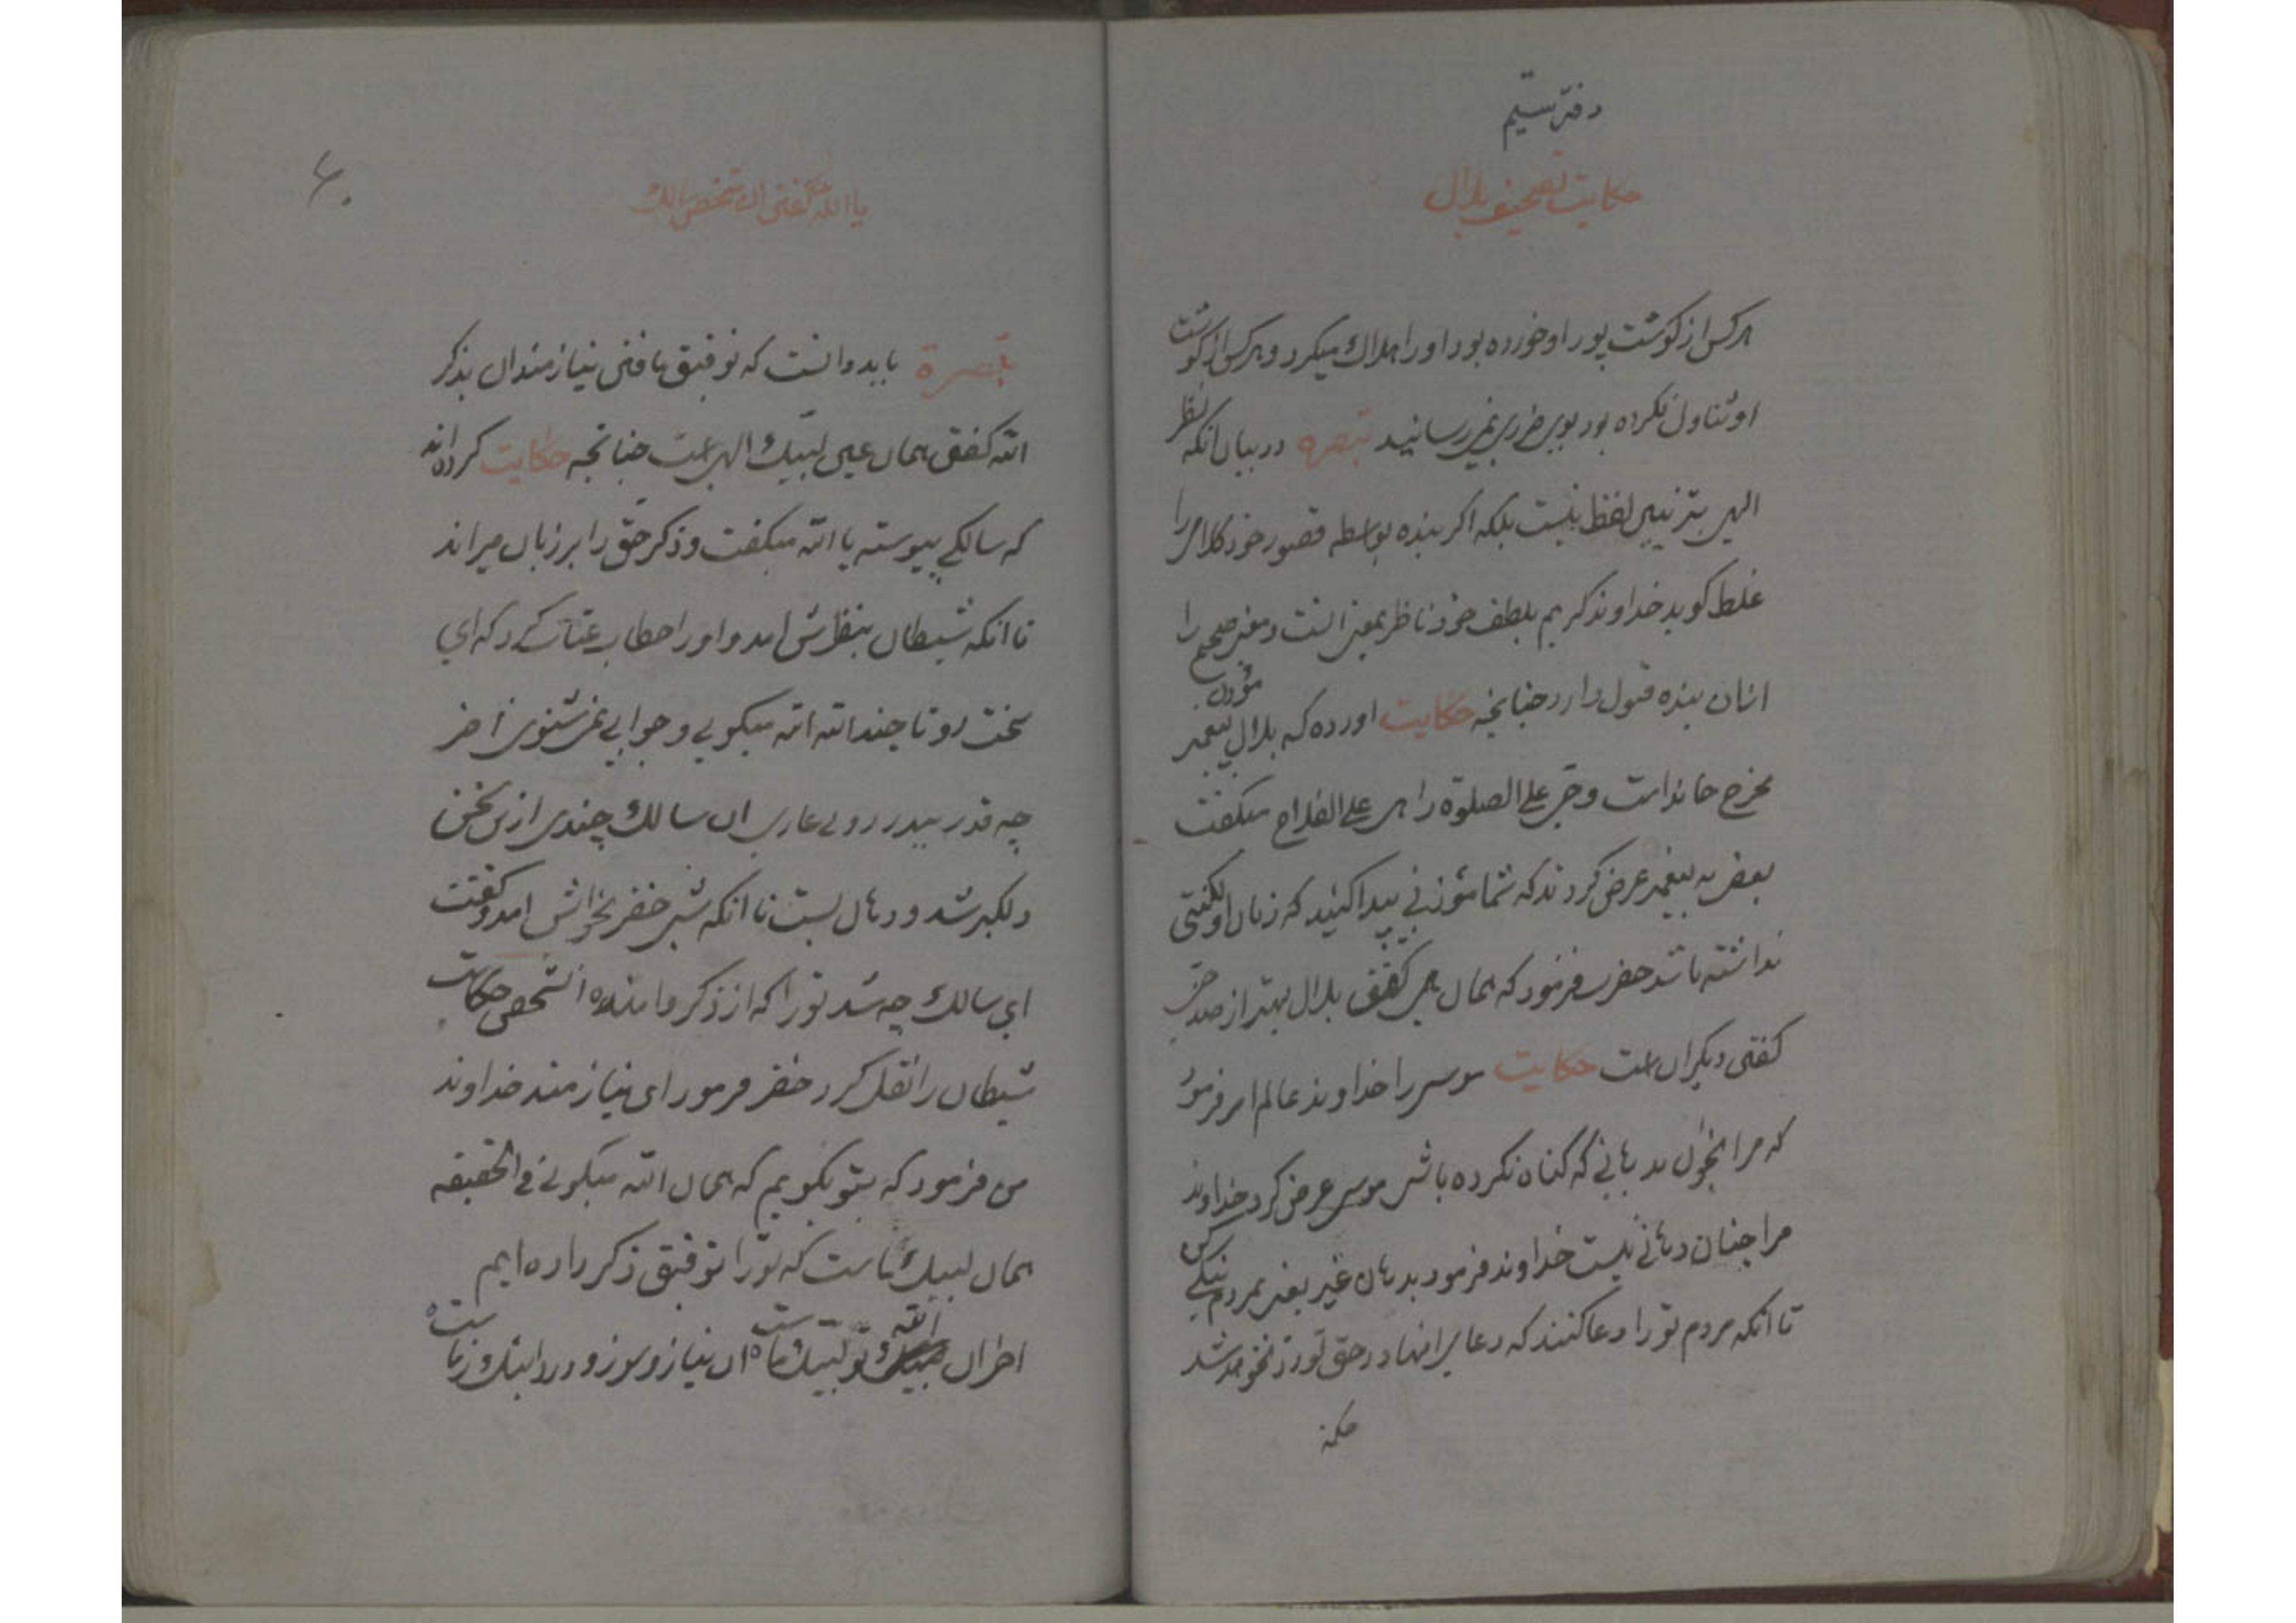 دفتر سیم
حکایت تصحیف بلال
هرکس از کوشت پور او خورده بود او را هلاك میکرد و هرکس از کوشت
او تناول نکرده بود بوی ضرری نمیرسانید تبصره در بیان انکه نظر
الهی بتزیین لفظ نیست بلکه اکر بنده بواسطه قصور خود کلامی را
غلط کوید خداوند کریم بلطف خود ناظر بمعنی است و معنی صحیح را
ازان بنده قبول دارد چنانچه حکایت اورده که بلال مؤذن پیغمبر
مخرج حا نداشت و حی علی الصلوة را هی علی الفلاح میکفت
بعضی به پیغمبر عرض کردند که شما مؤذنی پیدا کنید که زبان او لکنتی
نداشته باشد حضرت فرمود که همان هی کفتن بلال بهتر از صد حی
کفتن دیکران است حکایت موسی را خداوند عالم امر فرمود
که مرا بخوان بدهانی که کناه نکرده باشی موسی عرض کرد خداوند
مرا چنان دهانی نیست خداوند فرمود بدهان غیر یعنی بمردم نیکی کن
تا انکه مردم تو را دعا کنند که دعای انها در حق تو رد نخواهد شد
حکمة
۶۰
یا الله کفتن ان شخص سالك
تبصرة باید دانست که توفیق یافتن نیازمندان بذکر
الله کفتن همان عین لبیك الهی است چنانچه حکایت کرده اند
که سالکی پیوسته یا الله میکفت و ذکر حق را بر زبان میراند
تا انکه شیطان بنظرش امد و او را خطاب عتاب کرد که ای
سخت رو تا چند الله الله میکویی و جوابی نمی شنوی اخر
چه قدر بیدرد و بی عاری ان سالك چندی ازین سخن
دلکیر شد و دهان بست تا انکه شبی خضر بخوابش امد و کفت
ای سالك چه شد تو را که از ذکر وا مانده انشخص حکایت
شیطان را نقل کرد خضر فرمود ای نیازمند خداوند
من فرمود که بتو بکویم که همان الله میکوئی فی الحقیقه
همان لبیك ماست که تو را توفیق ذکر داده ایم
الله تو لبیك ماست ان نیاز و سوز و دردت پیك ماست